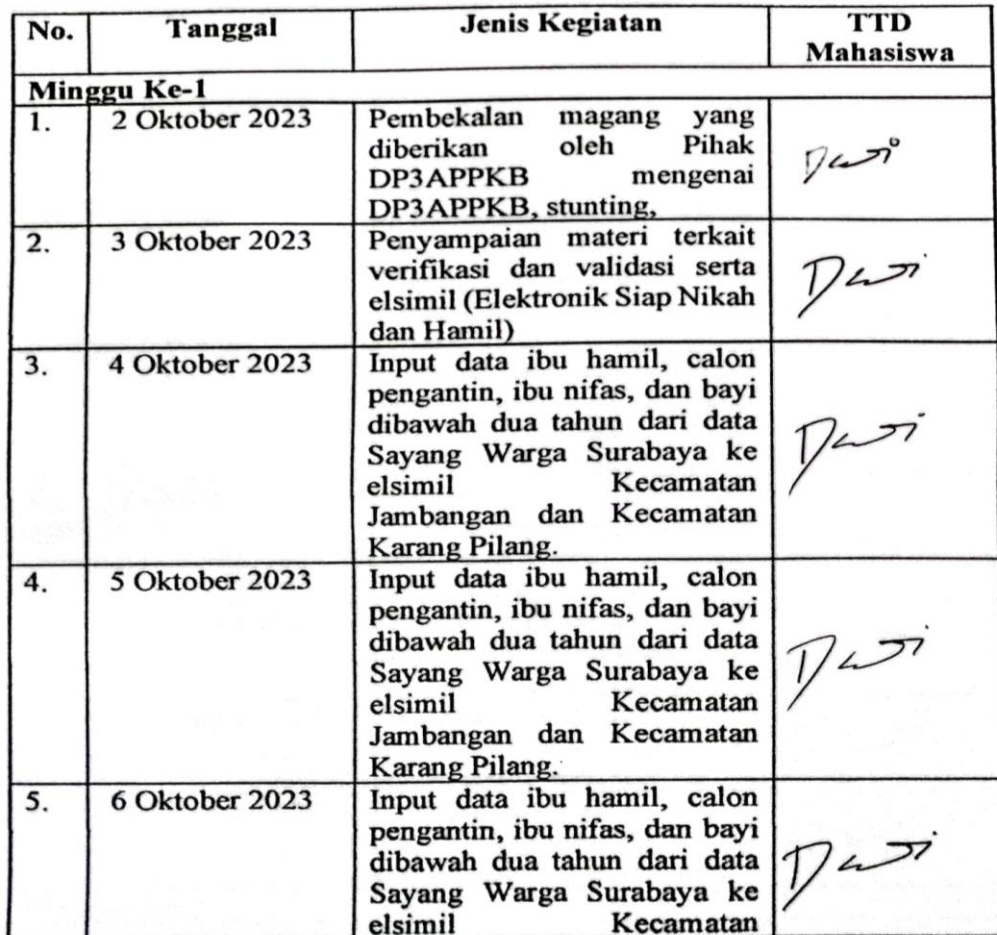 No. Tanggal Jenis Kegiatan TTD
Mahasiswa
Minggu Ke-1
1. 2 Oktober 2023 Pembekalan magang yang
diberikan oleh Pihak
DP3APPKB mengenai
DP3APPKB, stunting,
Dewi
2. 3 Oktober 2023 Penyampaian materi terkait
verifikasi dan validasi serta
elsimil (Elektronik Siap Nikah
dan Hamil)
Dewi
3. 4 Oktober 2023 Input data ibu hamil, calon
pengantin, ibu nifas, dan bayi
dibawah dua tahun dari data
Sayang Warga Surabaya ke
elsimil Kecamatan
Jambangan dan Kecamatan
Karang Pilang.
Dewi
4. 5 Oktober 2023 Input data ibu hamil, calon
pengantin, ibu nifas, dan bayi
dibawah dua tahun dari data
Sayang Warga Surabaya ke
elsimil Kecamatan
Jambangan dan Kecamatan
Karang Pilang.
Dewi
5. 6 Oktober 2023 Input data ibu hamil, calon
pengantin, ibu nifas, dan bayi
dibawah dua tahun dari data
Sayang Warga Surabaya ke
elsimil Kecamatan
Dewi